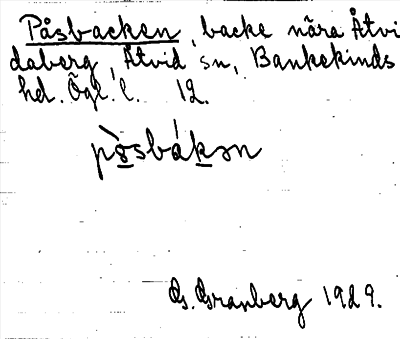 Påsbacken, backe nära Åtvi
daberg, Åtvid sn, Bankekinds
hd. Ögl. l. 12.
pò̱sbáḵən
G. Granberg 1929.